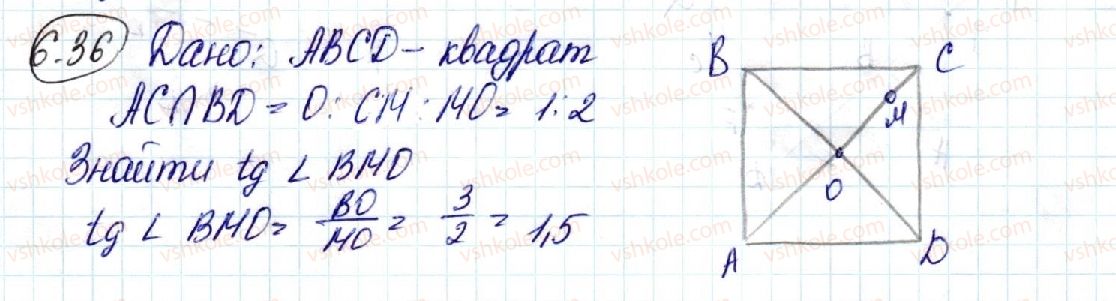 6.36 Дано: ABCD – квадрат
AC∩BD = O: CM : MO = 1:2
Знайти tg ∠ BMO
tg ∠ BMO = BO/MO = 3/2 = 1,5
B C
M
O
A D